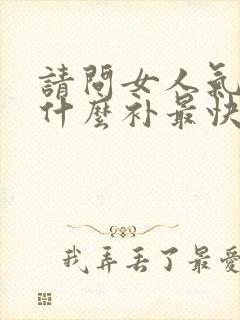 請問女人氣
什麼补最快
我弄丢了最愛